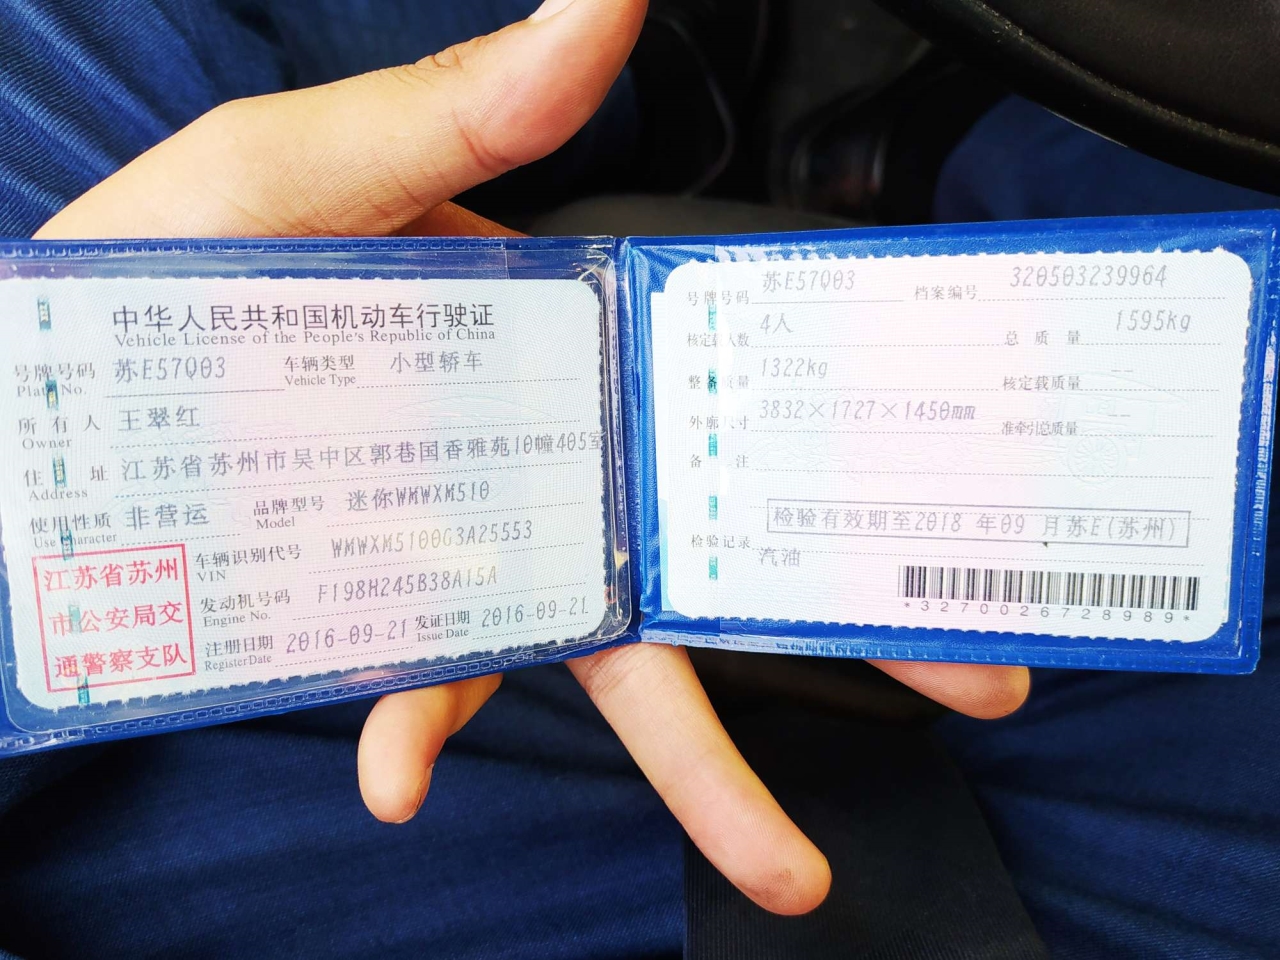 中华人民共和国机动车行驶证
Vehicle License of the People's Republic of China
号牌号码 苏E57Q03 车辆类型 小型轿车
Plate No. Vehicle Type
所有人 王翠红
Owner
住址 江苏省苏州市吴中区郭巷国香雅苑10幢405室
Address
使用性质 非营运 品牌型号 迷你WMWXM510
Use Character Model
车辆识别代号 WMWXM5100G3A25553
VIN
发动机号码 F198H245B38A15A
Engine No.
注册日期 2016-09-21 发证日期 2016-09-21
Register Date Issue Date
江苏省苏州
市公安局交
通警察支队
号牌号码 苏E57Q03 档案编号 320503239964
核定载人数 4人 总质量 1595kg
整备质量 1322kg 核定载质量 --
外廓尺寸 3832×1727×1450mm 准牵引总质量 --
备注
检验有效期至2018 年09 月苏E(苏州)
检验记录
汽油
*3270026728989*